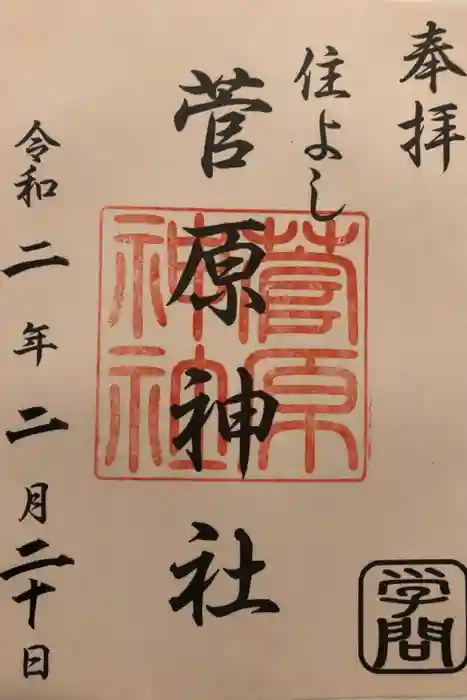 奉拝
住よし
菅原神社
菅原神社
学問
令和二年二月二十日